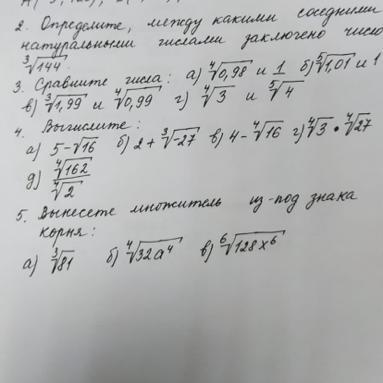 2. Определите, между какими соседними
натуральными числами заключено число
∛144.
3. Сравните числа: а) ∜0,98 и 1 б) ⁵√1,01 и 1
в) ∛1,99 и ∜0,99 г) ∜3 и ⁵√4
4. Вычислите:
а) 5-√16 б) 2+∛-27 в) 4-∜16 г) ∜3 • ∜27
д) ∜162
∜2
5. Вынесете множитель из-под знака
корня:
а) ∛81 б) ∜32a⁴ в) ⁶√128x⁶